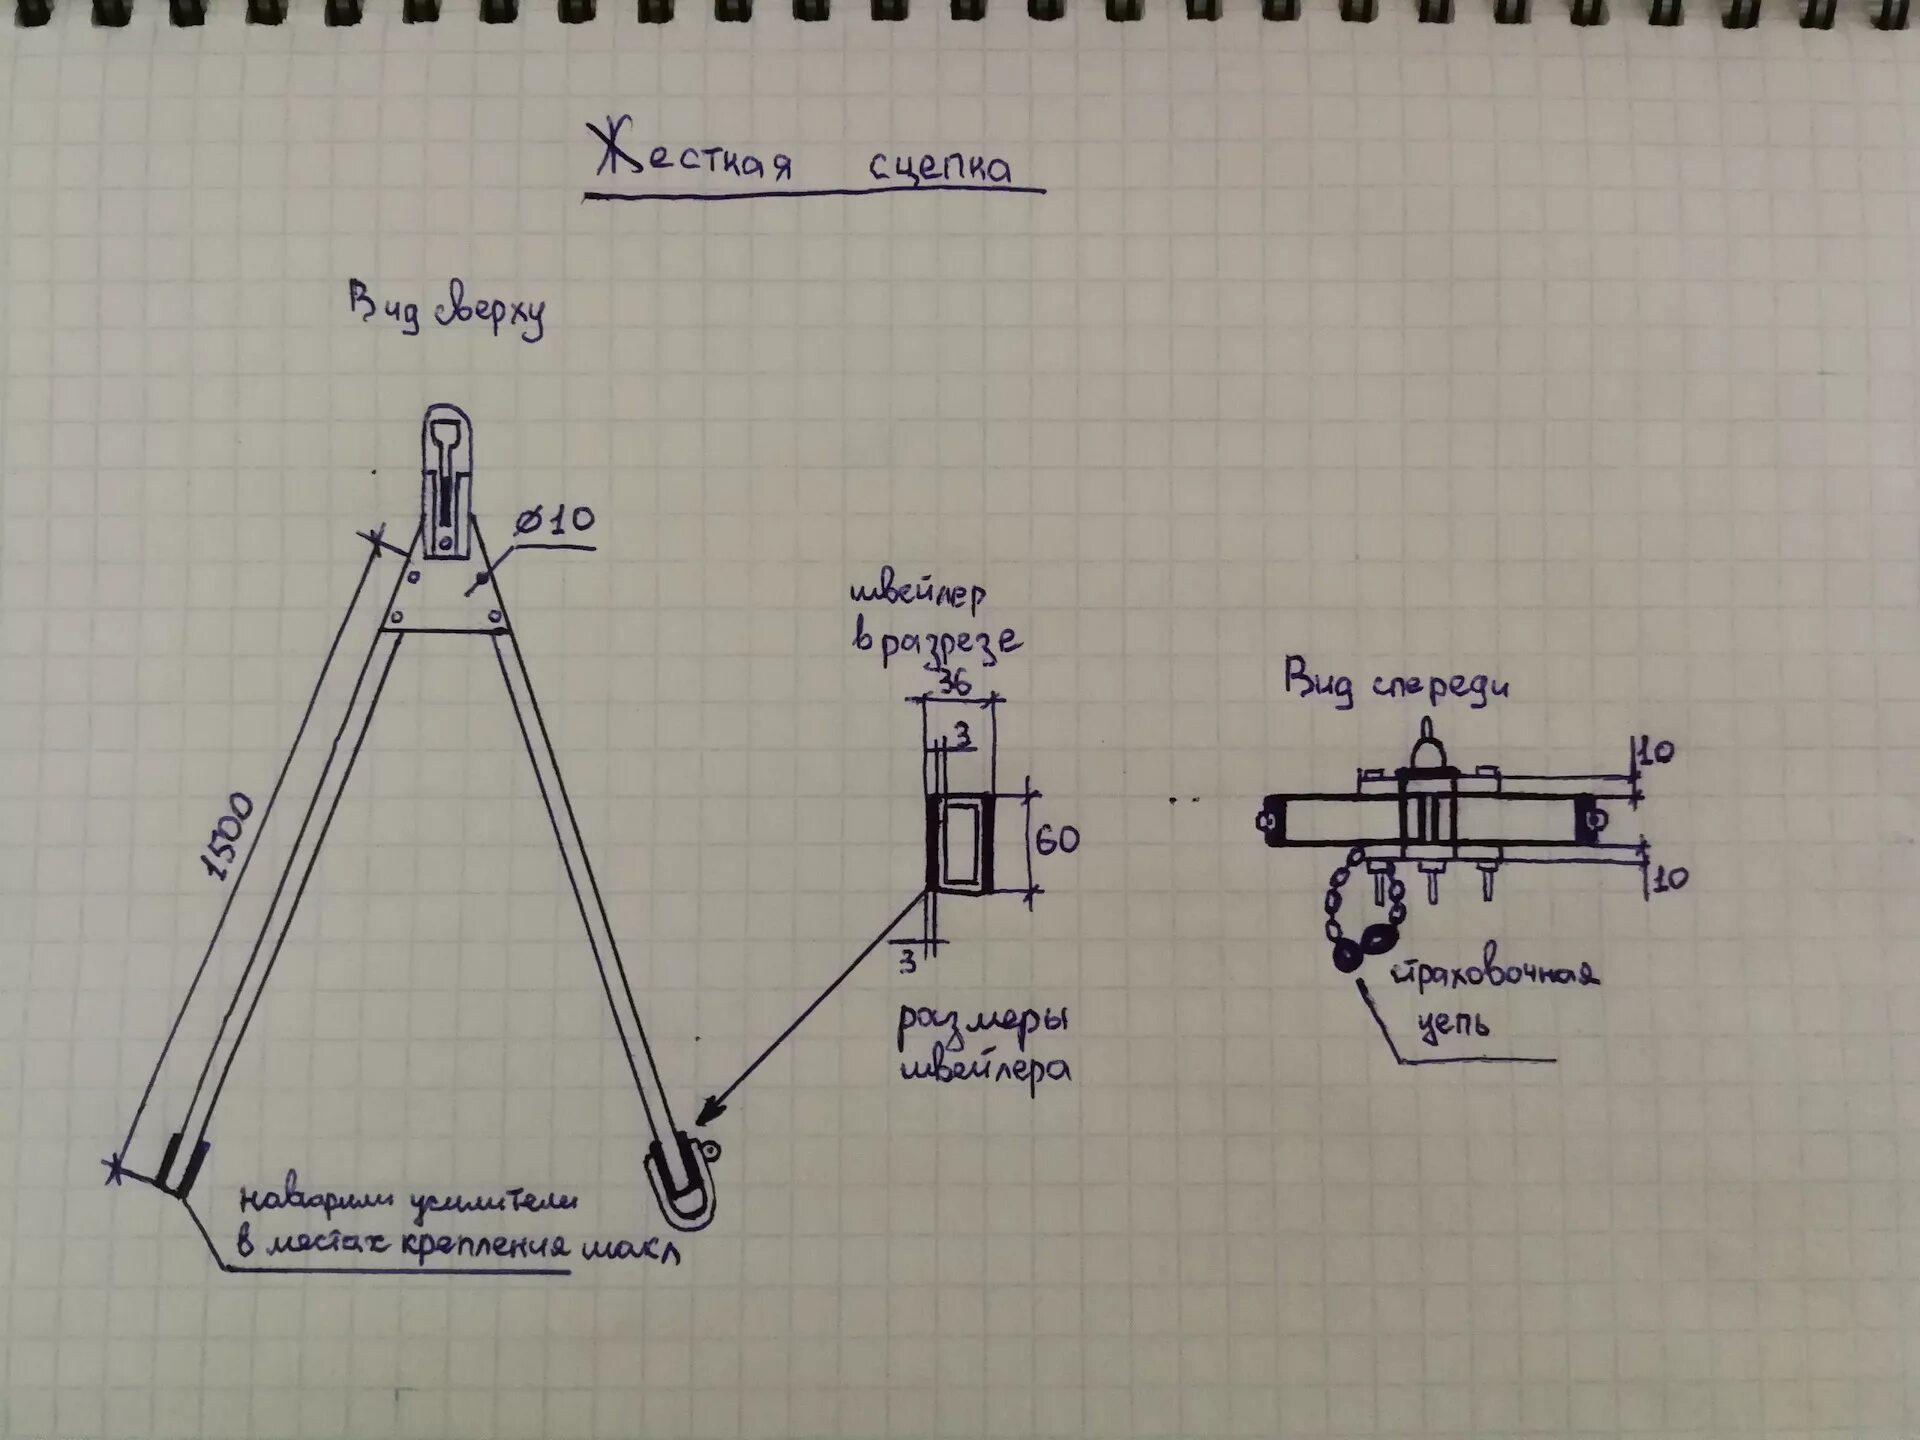 Жесткая сцепка
Вид сверху
ø10
1500
наварили усилители
в местах крепления шакл
швейлер
в разрезе
36
3
60
3
размеры
швейлера
Вид спереди
10
10
страховочная
цепь